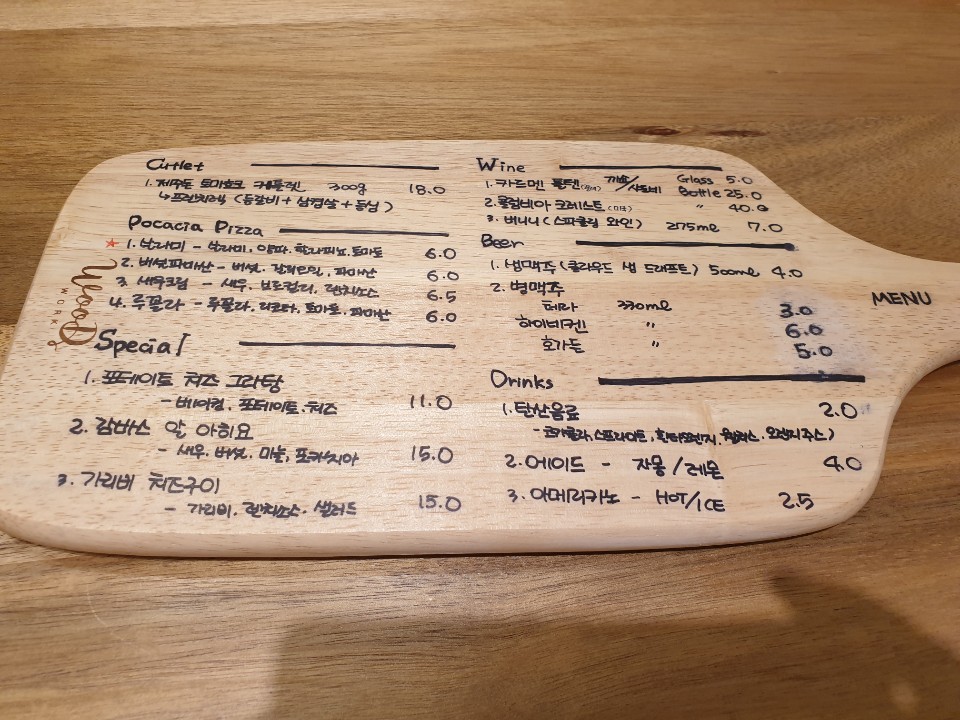 Cutlet
1. 제주돈 토마호크 커틀렛 300g 18.0
↳프렌치랙 (등갈비+삼겹살+등심)
Pocacia Pizza
★ 1. 살라미 - 살라미, 양파, 할라피뇨, 토마토 6.0
2. 버섯파마산 - 버섯, 칼라만시, 파마산 6.0
3. 새우크림 - 새우, 브로컬리, 랜치소스 6.5
4. 루꼴라 - 루꼴라, 리코타, 토마토, 파마산 6.0
Special
1. 포테이토 치즈 그라탕
- 베이컨, 포테이토, 치즈 11.0
2. 감바스 알 아히요
- 새우, 버섯, 마늘, 포카치아 15.0
3. 가리비 치즈구이
- 가리비, 랜치소스, 샐러드 15.0
Wine
1. 카르멘 톨텐(칠레) 까쇼/샤도네 Glass 5.0
Bottle 25.0
2. 콜럼비아 크레스트(미국) " 40.0
3. 버니니(스파클링 와인) 275ml 7.0
Beer
1. 생맥주(클라우드 생 드래프트) 500ml 4.0
2. 병맥주
테라 330ml 3.0
하이네켄 " 6.0
호가든 " 5.0
Drinks
1. 탄산음료 2.0
- 코카콜라, 스프라이트, 환타오렌지, 웰치스, 오렌지주스)
2. 에이드 - 자몽/레몬 4.0
3. 아메리카노 - HOT/ICE 2.5
MENU
Wood
WORKS